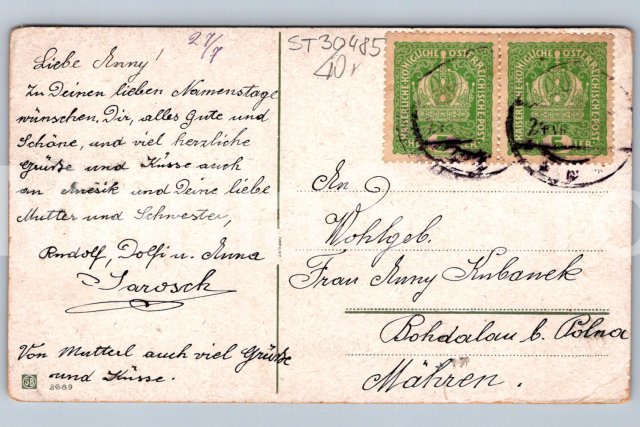 27/7
ST30485
40,-
Liebe Anny!
Zu Deinen lieben Namenstage
wünschen Dir, alles Gute und
Schöne, und viel herzliche
Grüße und Küsse auch
an und Deine liebe
Mutter und Schwester,
Rudolf, Dolfi u. Anna
Jarosch
Von Mutterl auch viel Grüße
und Küsse.
SB
2689
KAISERLICHE KÖNIGLICHE ÖSTERREICHISCHE POST
5 HELLER
KAISERLICHE KÖNIGLICHE ÖSTERREICHISCHE POST
5 HELLER
An
Wohlgeb.
Frau Anny Kubanek
Bohdalau b. Polna
Mähren.